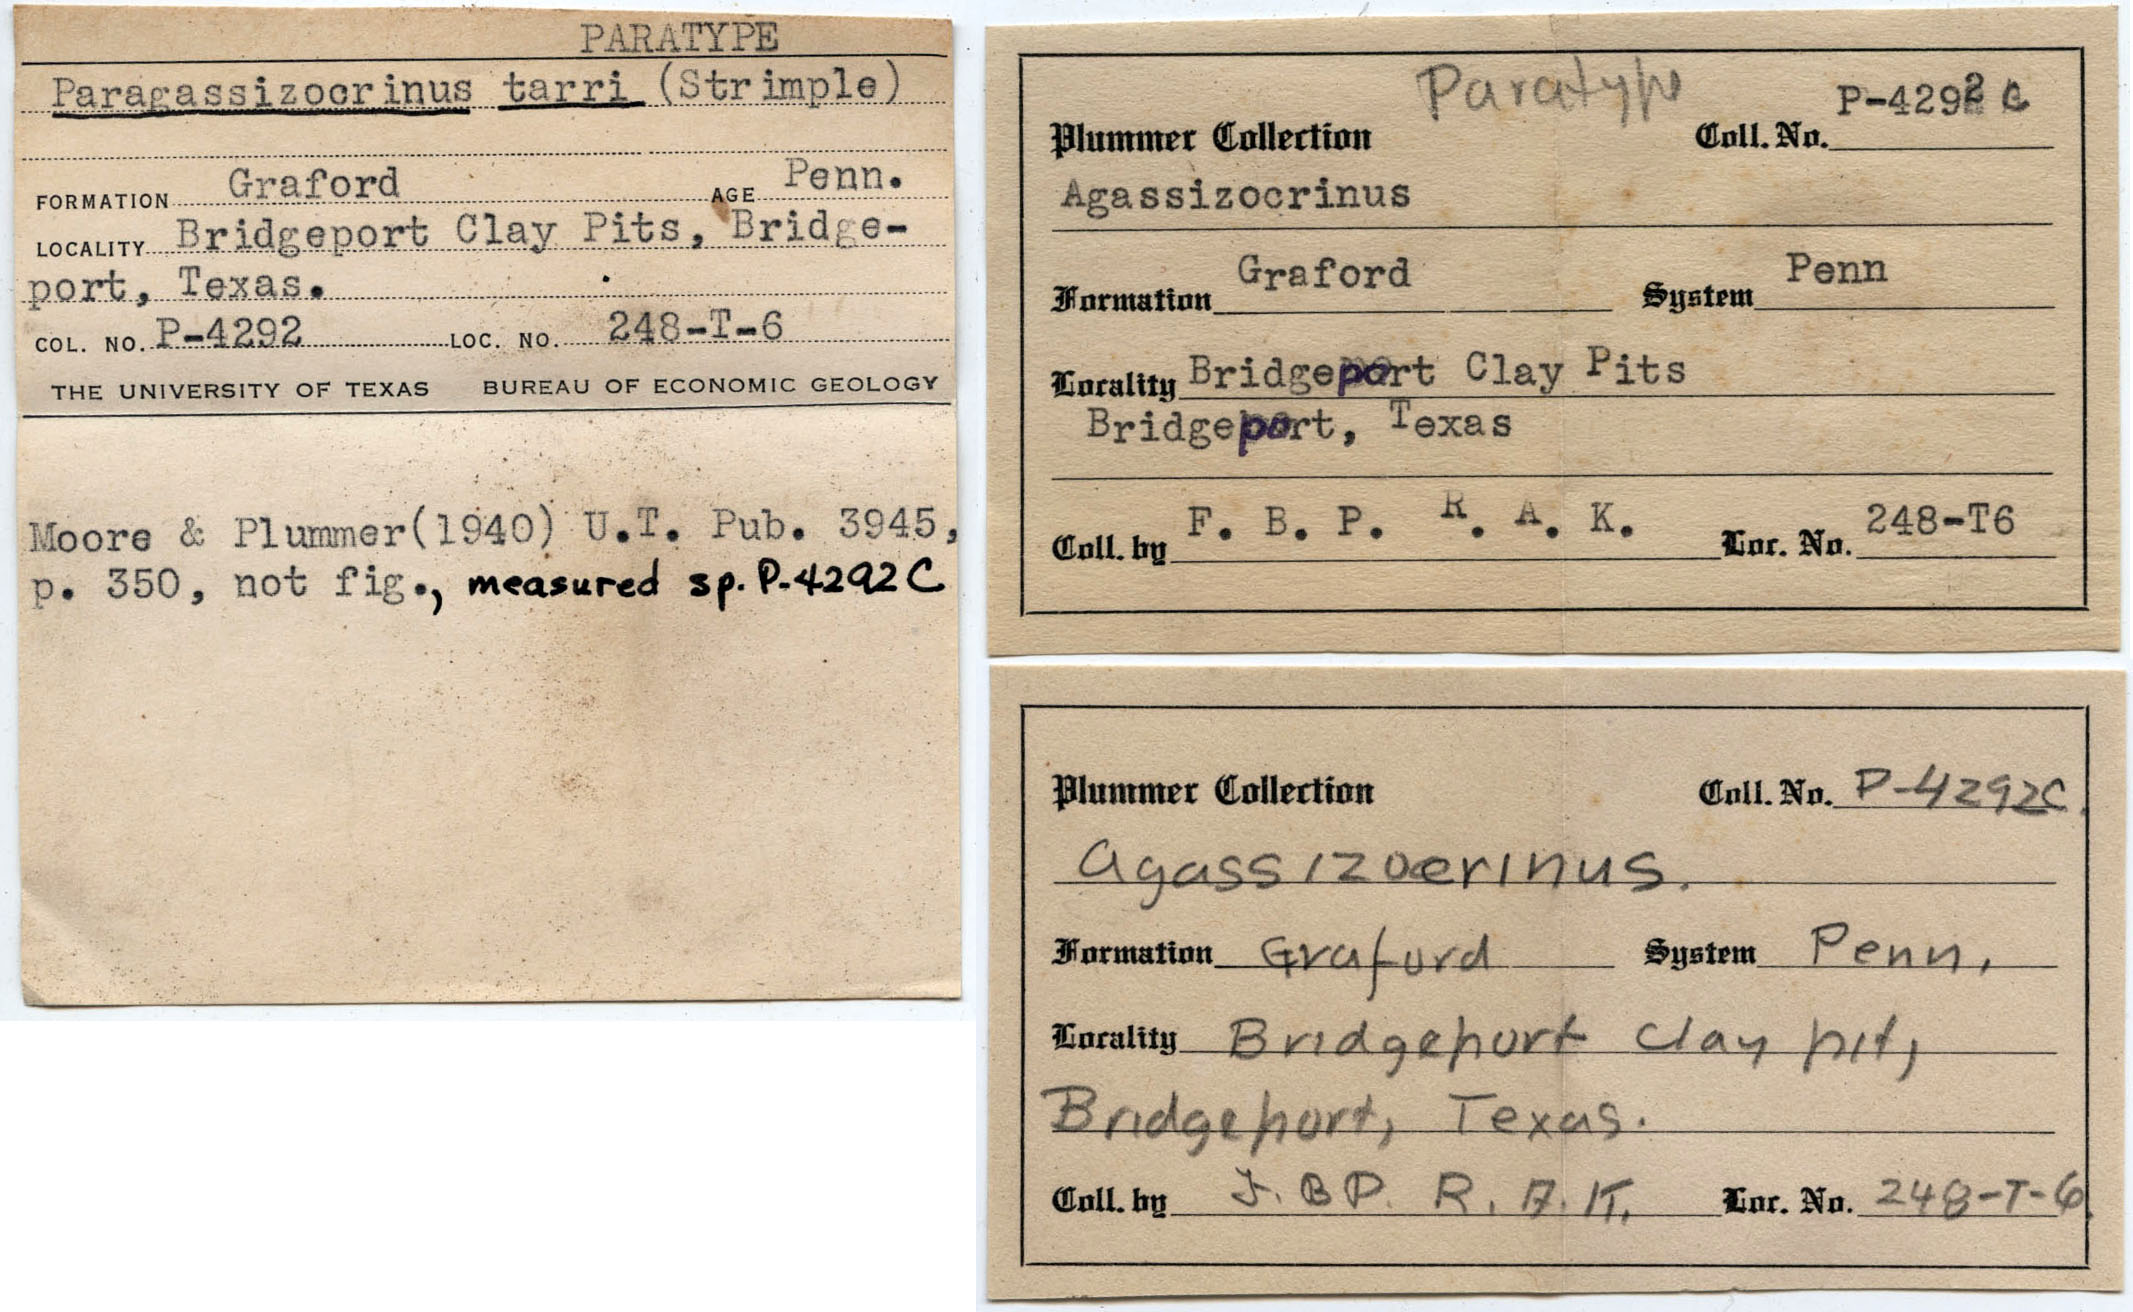 PARATYPE
Paragassizocrinus tarri (Strimple)
FORMATION Graford AGE Penn.
LOCALITY Bridgeport Clay Pits, Bridge-
port, Texas.
COL. NO. P-4292 LOC. NO. 248-T-6
THE UNIVERSITY OF TEXAS BUREAU OF ECONOMIC GEOLOGY
Moore & Plummer(1940) U.T. Pub. 3945,
p. 350, not fig., measured sp. P-4292C
Paratype
Plummer Collection Coll. No. P-4292 C
Agassizocrinus
Formation Graford System Penn
Locality Bridgeport Clay Pits
Bridgeport, Texas
Coll. by F. B. P. R. A. K. Loc. No. 248-T6
Plummer Collection Coll. No. P-4292C.
Agassizocrinus.
Formation Graford System Penn.
Locality Bridgeport Clay pit,
Bridgeport, Texas.
Coll. by F. B P. R. A. K. Loc. No. 248-T-6